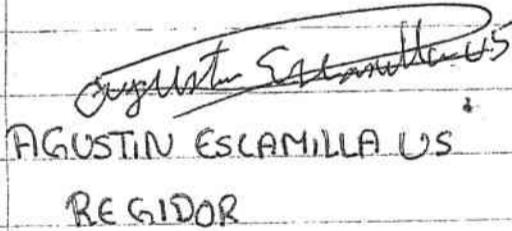 Agustin Escamilla US
AGUSTIN ESCAMILLA US
REGIDOR